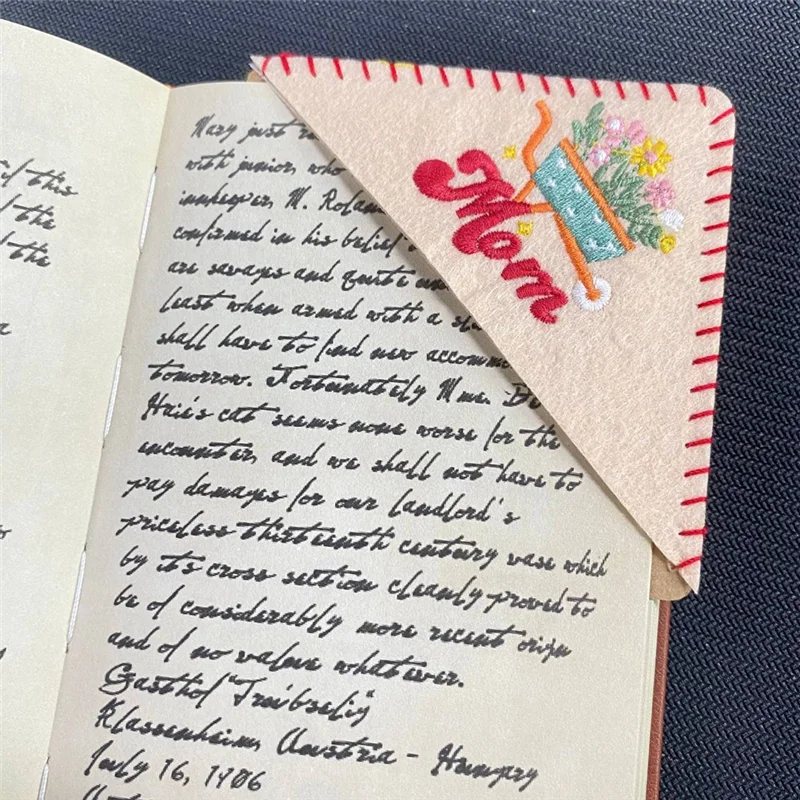 of this
the
the
Mary just
with junior, who
innkeeper, M. Roland
confirmed in his belief
are savages and quite
least when armed with a
shall have to find new accommo
tomorrow. Fortunately Mme. De
Haie's cat seems none worse for the
encounter, and we shall not have to
pay damages for our landlord's
priceless thirteenth century vase which
by its cross section cleanly proved to
be of considerably more recent origin
and of no value whatever.
Gasthof "Treibselig"
Klassenheim, Austria - Hungary
July 16, 1906
Mom